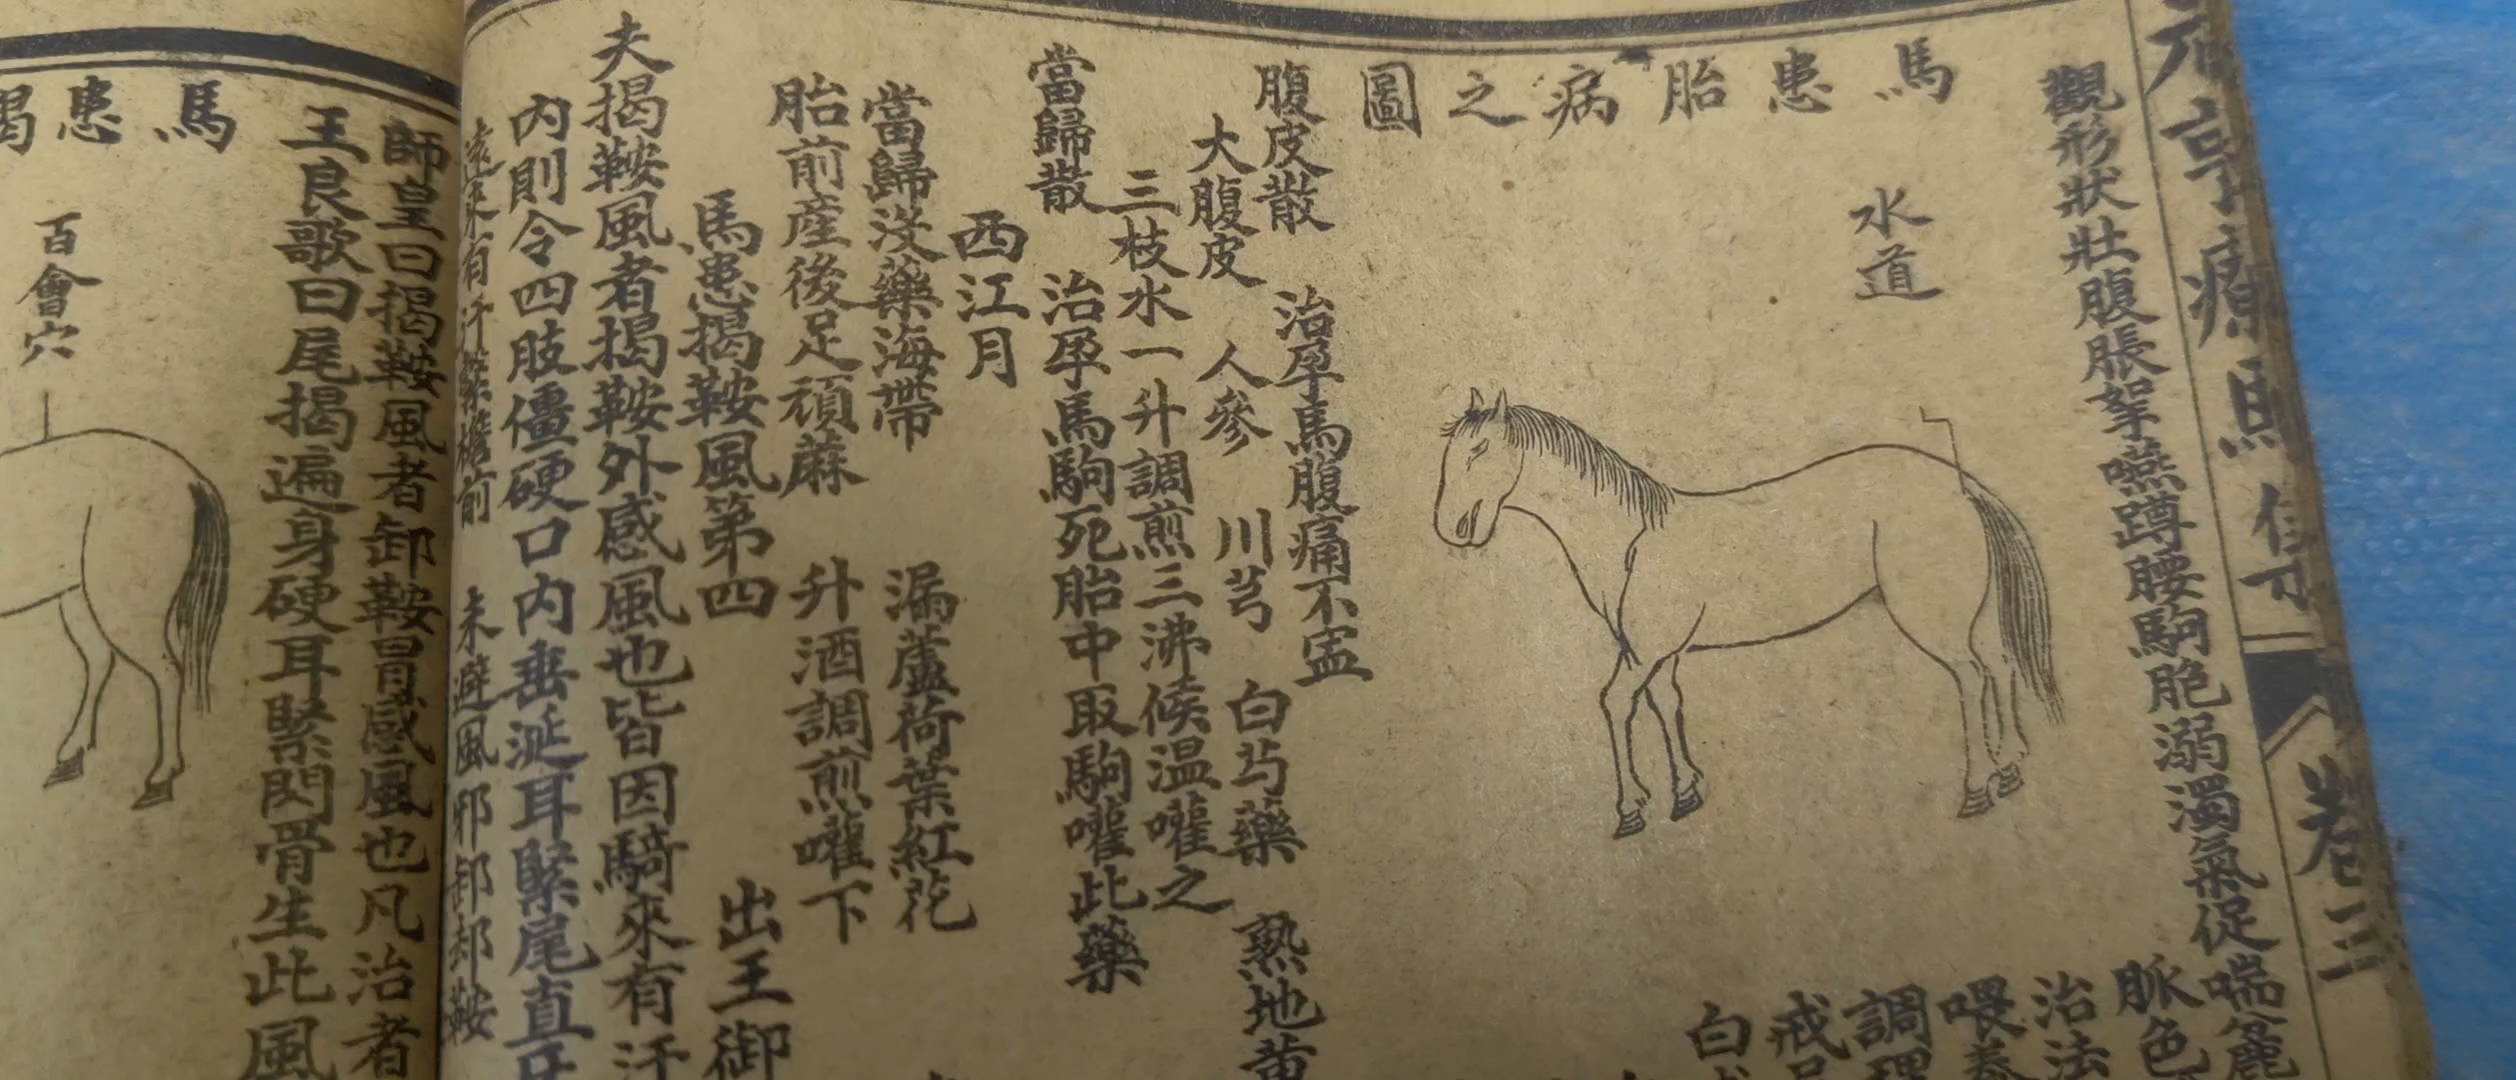 元亨療馬集
卷三
觀形狀壯腹脹拏嚥蹲腰駒胞溺濁氣促喘麄
脈色
治法
喂養
調理
戒忌
白
馬患胎病之圖
水道
腹皮散 治孕馬腹痛不𡧳
大腹皮 人參 川芎 白芍藥 熟地黄
三枝水一升調煎三沸候温嚾之
當歸散 治孕馬駒死胎中取駒嚾此藥
西江月
當歸沒藥海帶 漏蘆荷葉紅花
胎前產後足頑麻 升酒調煎嚾下
馬患揭鞍風第四 出王御
夫揭鞍風者揭鞍外感風也皆因騎來有汗
內則令四肢僵硬口內垂涎耳緊尾直牙
遠來有汗繫檐前 未避風邪卸却鞍
師皇曰揭鞍風者卸鞍冒感風也凡治者
王良歌曰尾揭遍身硬耳緊閃骨生此風
馬患揭
百會穴